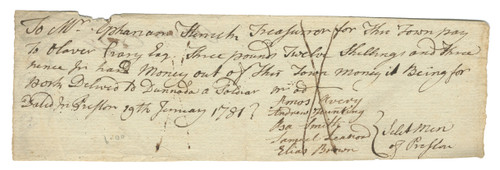 To Mr. Ephariam Treasurror for This Town pay
To Olaver Crary Esq. Three pounds Twelve Shillings and three
pence In hard Money out of This Town Money it Being for
Pork Delived to Dunnada a Soldiar
Dated In Preston 29th Jenuary 1781
Amos Avery
Andrew
Smith
Samuel Leaxon
Elias Brown
Selet Men
of Preston